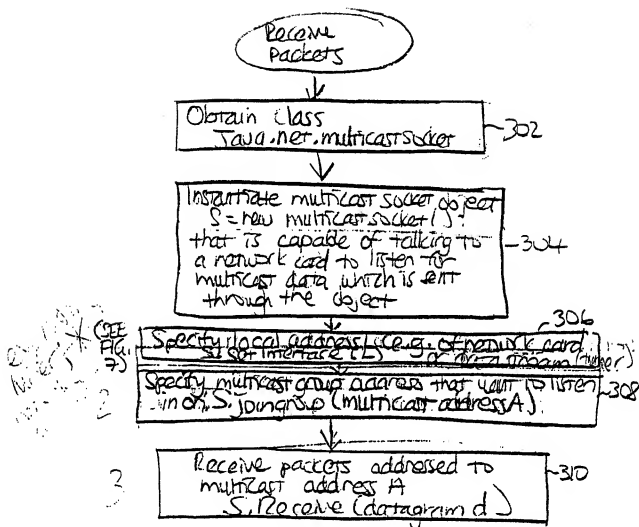 Receive
Packets
Obtain Class
Java.net.multicastsocket
302
Instantiate multicast socket object
S = new multicast socket( );
that is capable of talking to
a network card to listen for
multicast data which is sent
through the object
304
306
(SEE
FIG.
7)
Specify local address (e.g. of network card
S. set Interface (L) or data stream (tuner)
Specify multicast group address that want to listen
in on, S. joingroup (multicast address A)
308
2
Receive packets addressed to
multicast address A
S. Receive (datagram d)
310
3